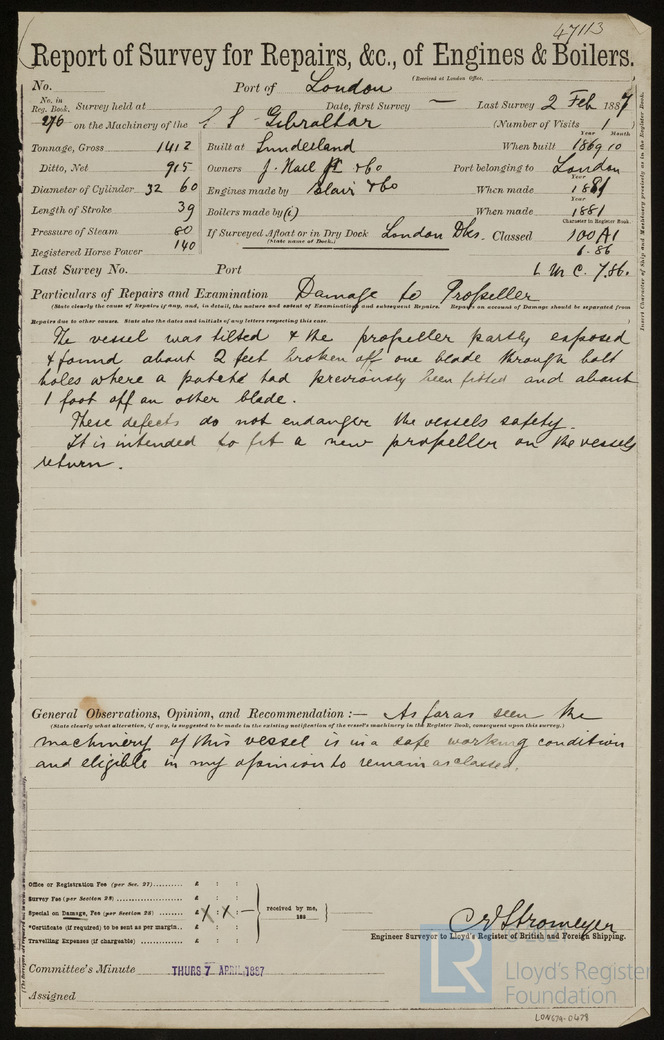 47113
Report of Survey for Repairs, &c., of Engines & Boilers.
(Received at London Office,
No. Port of London
No. in Reg. Book. Survey held at Date, first Survey — Last Survey 2 Feb 1887
276 on the Machinery of the S S Gibraltar (Number of Visits 1 )
Year Month
Tonnage, Gross 1412 Built at Sunderland When built 1869 10
Ditto, Net 915 Owners J. Hall Jr & Co Port belonging to London
Year
Diameter of Cylinder 32 60 Engines made by Blair & Co When made 1881
Year
Length of Stroke 39 Boilers made by (") When made 1881
Character in Register Book
Pressure of Steam 80 If Surveyed Afloat or in Dry Dock London Dks. Classed 100 A1
(State name of Dock.)
Registered Horse Power 140 6.86
Last Survey No. Port L M C. 7.86.
Particulars of Repairs and Examination Damage to Propeller
(State clearly the cause of Repairs if any, and, in detail, the nature and extent of Examinations and subsequent Repairs. Repairs on account of Damage should be separated from
Repairs due to other causes. State also the dates and initials of any letters respecting this case.
The vessel was tilted & the propeller partly exposed
& found about 2 feet broken off one blade through bolt
holes where a patch had previously been fitted and about
1 foot off an other blade.
These defects do not endanger the vessels safety.
It is intended to fit a new propeller on the vessels
return.
General Observations, Opinion, and Recommendation :— As far as seen the
(State clearly what alteration, if any, is suggested to be made in the existing notification of the vessel's machinery in the Register Book, consequent upon this survey.)
machinery of this vessel is in a safe working condition
and eligible in my opinion to remain as classed.
Office or Registration Fee (per Sec. 27) £ : :
Survey Fee (per Section 28) £ : :
Special on Damage, Fee (per Section 28) £ X : X : —
received by me,
188
*Certificate (if required) to be sent as per margin £ : :
Travelling Expenses (if chargeable) £ : :
C E Stromeyer
Engineer Surveyor to Lloyd's Register of British and Foreign Shipping.
Committee's Minute THURS 7 APRIL 1887
Assigned
Insert Character of Ship and Machinery precisely as in the Register Book.
LR
Lloyd's Register
Foundation
LON679-0478